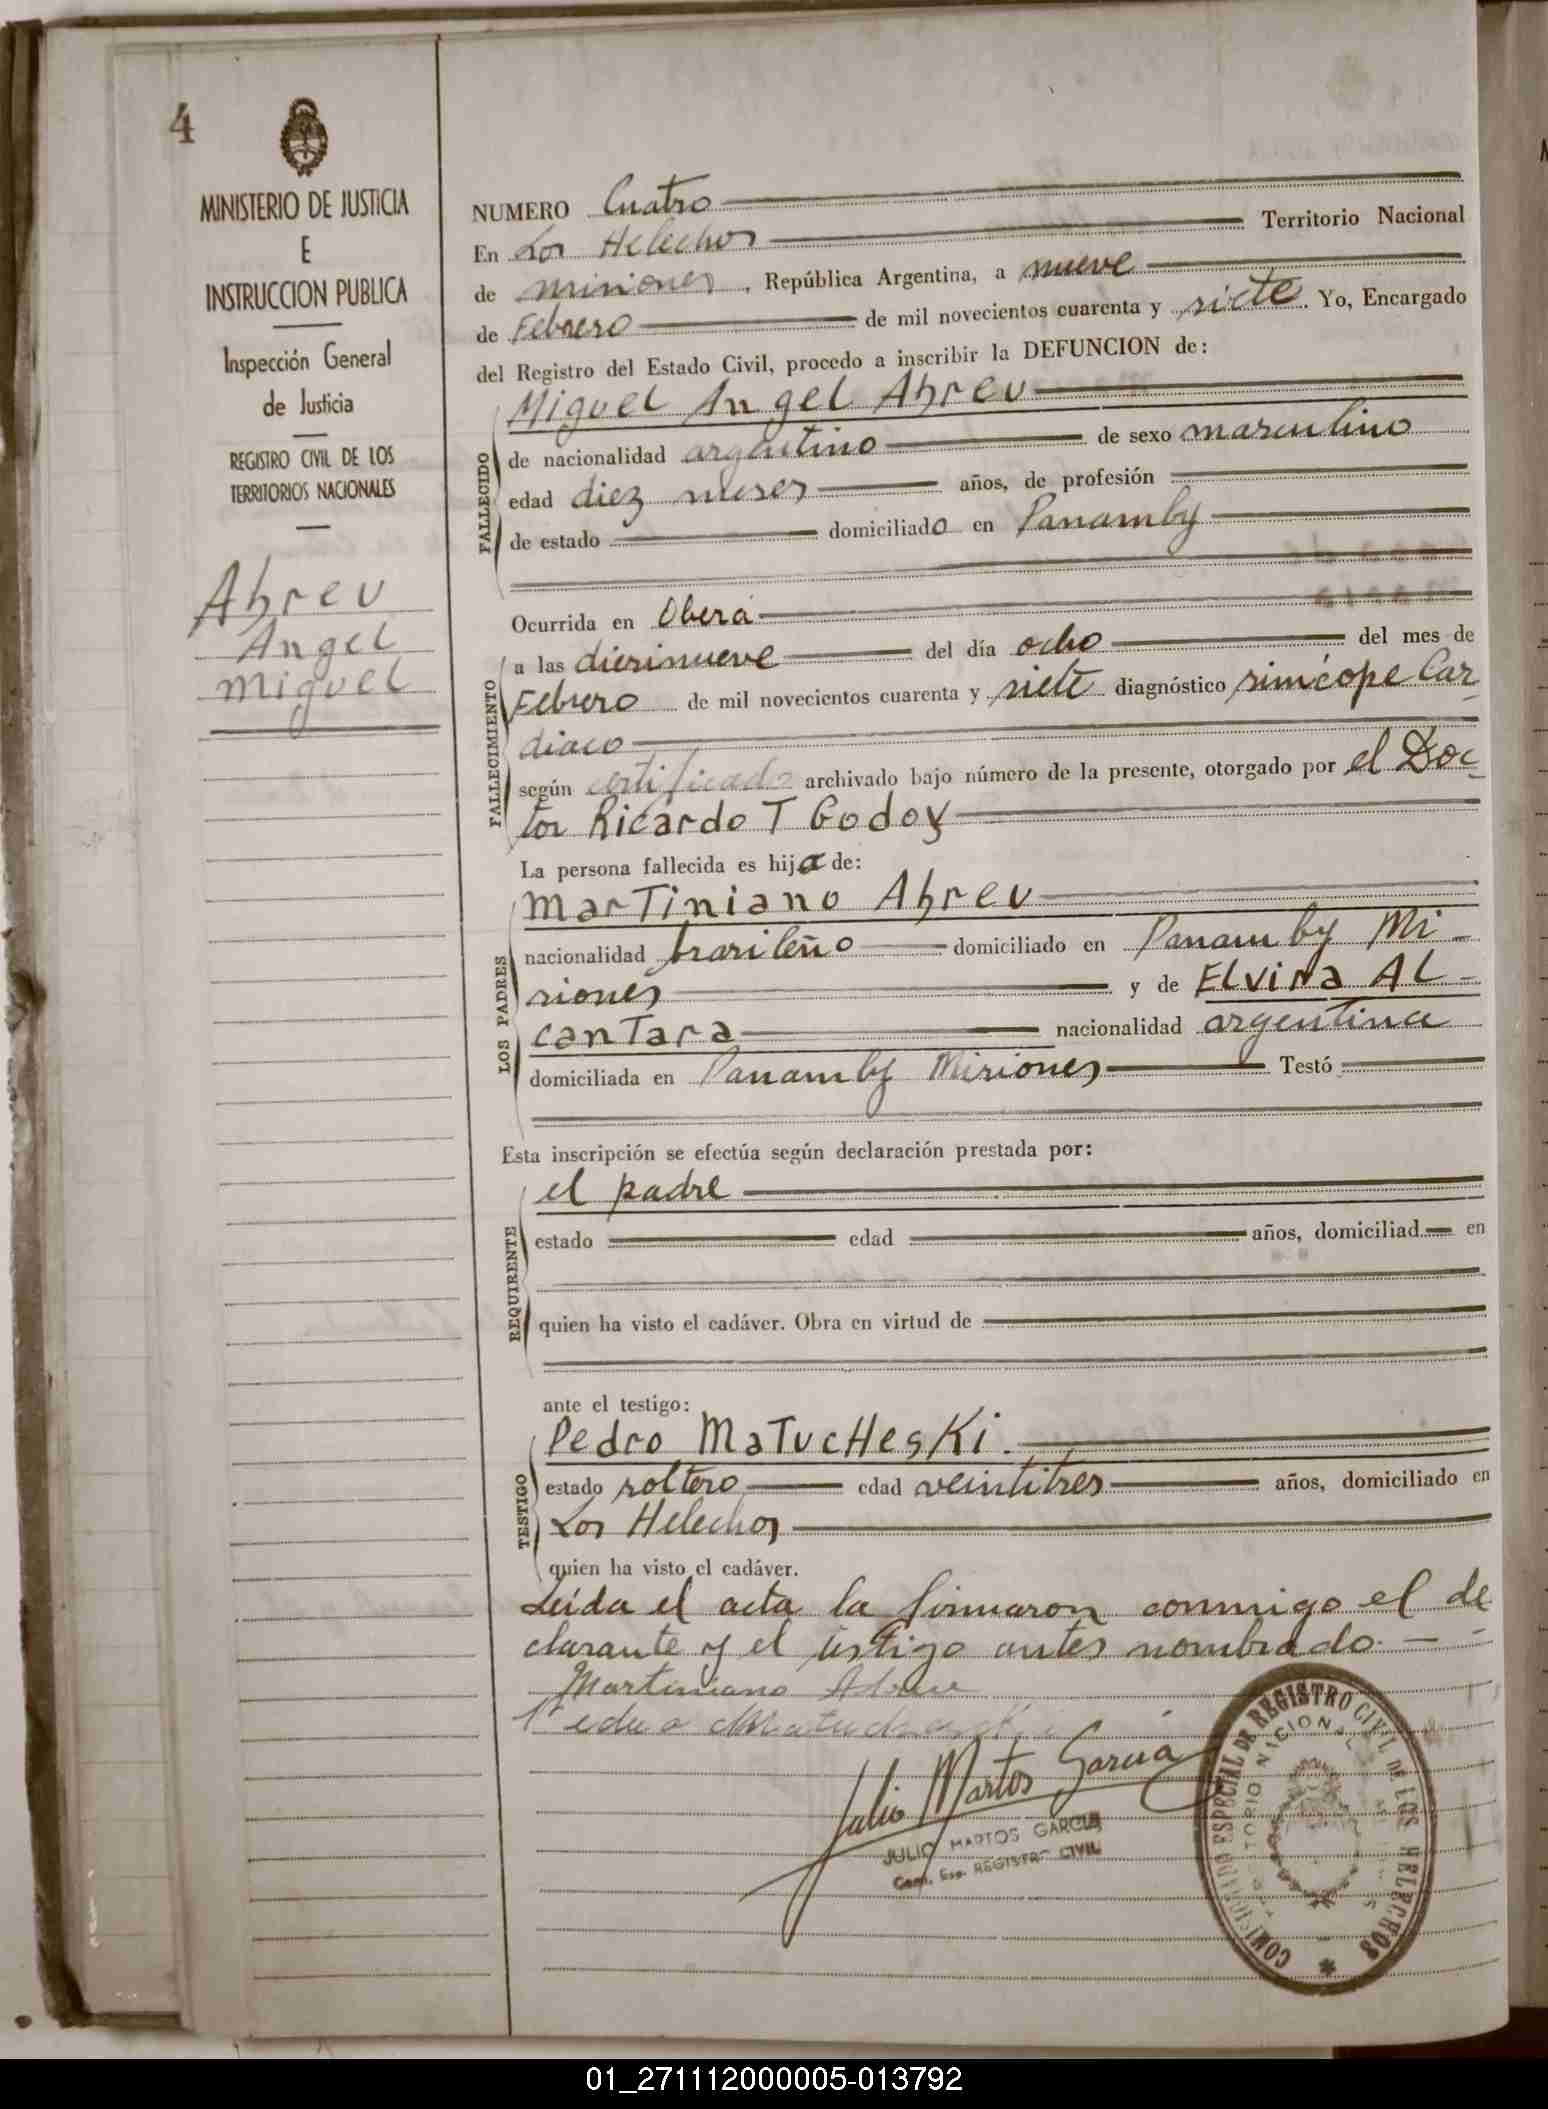 4
MINISTERIO DE JUSTICIA
E
INSTRUCCION PUBLICA
Inspección General
de Justicia
REGISTRO CIVIL DE LOS
TERRITORIOS NACIONALES
Abreu
Angel
Miguel
NUMERO Cuatro
En Los Helechos Territorio Nacional
de Misiones, República Argentina, a nueve
de Febrero de mil novecientos cuarenta y siete. Yo, Encargado
del Registro del Estado Civil, procedo a inscribir la DEFUNCION de:
FALLECIDO
Miguel Angel Abreu
de nacionalidad argentino de sexo masculino
edad diez meses años, de profesión
de estado domiciliado en Panamby
FALLECIMIENTO
Ocurrida en Oberá
a las diesinueve del día ocho del mes de
Febrero de mil novecientos cuarenta y siete diagnóstico simcope Car-
diaco
según certificado archivado bajo número de la presente, otorgado por el Doc-
tor Ricardo T Godoy
La persona fallecida es hijo de:
LOS PADRES
Martiniano Abreu
nacionalidad brasileño domiciliado en Panamby Mi-
siones y de Elvira Al-
cantara nacionalidad argentina
domiciliada en Panamby Misiones Testó
Esta inscripción se efectúa según declaración prestada por:
REQUIRENTE
el padre
estado edad años, domiciliad en
quien ha visto el cadáver. Obra en virtud de
ante el testigo:
TESTIGO
Pedro Matucheski.
estado soltero edad veintitres años, domiciliado en
Los Helechos
quien ha visto el cadáver.
Leída el acta la firmaron conmigo el de
clarante y el testigo antes nombrado.
Martiniano Abreu
Pedro Matucheski
Julio Martos Garcia
JULIO MARTOS GARCIA
Com. Esp. REGISTRO CIVIL
COMISIONADO ESPECIAL DE REGISTRO CIVIL DE LOS HELECHOS
TERRITORIO NACIONAL
01_271112000005-013792